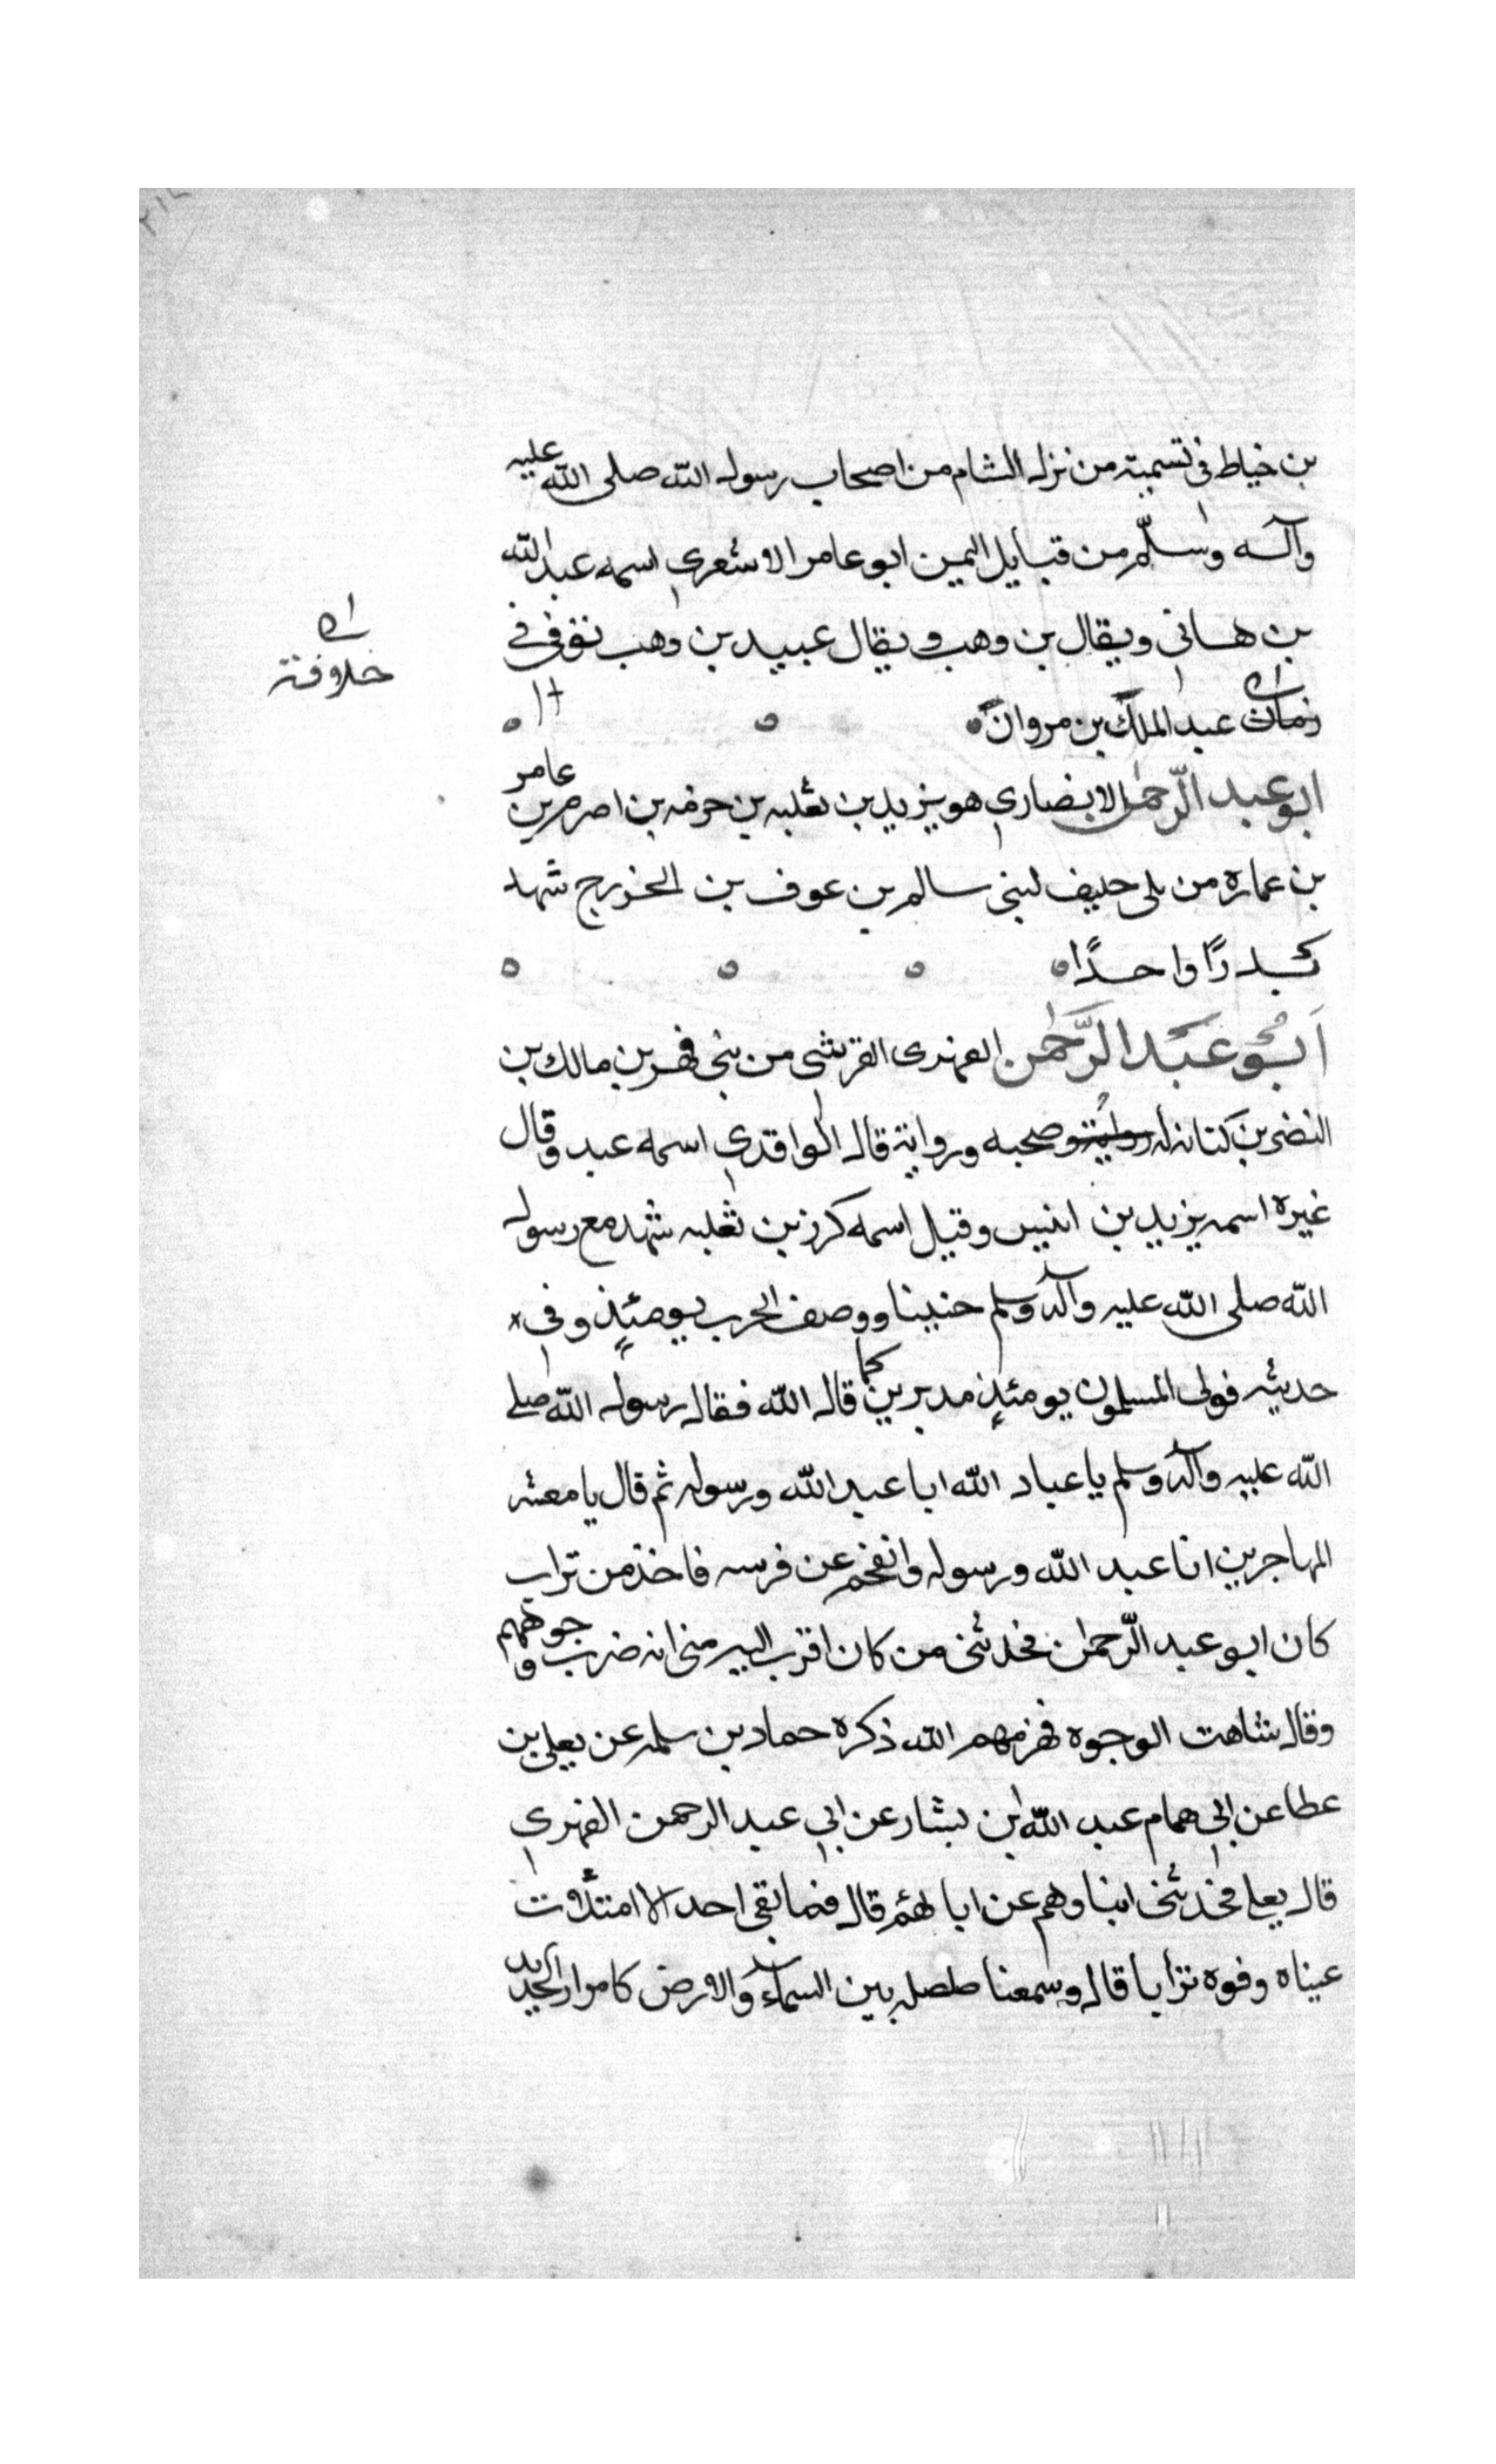 بن خياط في تسمية من نزل الشام من اصحاب رسول الله صلى الله عليه
وآله وسلم من قبايل اليمن ابو عامر الاشعري اسمه عبد الله
بن هاني ويقال بن وهب ويقال عبيد بن وهب توفي في
خلافته
زمان عبد الملك بن مروان
ابو عبد الرحمن الانصاري هو يزيد بن ثعلبه بن خزمه بن اصرم بن عامر
بن عماره من بلى حليف لبني سالم بن عوف بن الخزرج شهد
بدرًا واحدًا
ابو عبد الرحمن الفهرى القرشي من بني فهر بن مالك بن
النضر بن كنانه له رواية وصحبه ورواية قال الواقدي اسمه عبد وقال
غيره اسمه يزيد بن انيس وقيل اسمه كرز بن ثعلبه شهد مع رسول
الله صلى الله عليه وآله وسلم حنينا ووصف الحرب يومئذٍ وفي
حديثه فولى المسلمون يومئذٍ مدبرين كما قال الله فقال رسول الله صلى
الله عليه وآله وسلم يا عباد الله ايا عبد الله ورسوله ثم قال يا معشر
المهاجرين انا عبد الله ورسوله وانفخم عن فرسه فاخذ من تراب
كان ابو عبد الرحمن فحدثني من كان اقرب اليه مني انه ضرب وجوههم
وقال شاهت الوجوه فهزمهم الله ذكره حماد بن سلمه عن يعلى بن
عطا عن ابي همام عبد الله بن بشار عن ابي عبد الرحمن الفهري
قال يعلى فحدثني ابناوهم عن اباىهم قال فما بقى احد الا امتلات
عيناه وفوه ترابا قال وسمعنا صلصله بين السماء والارض كامرار الحديد